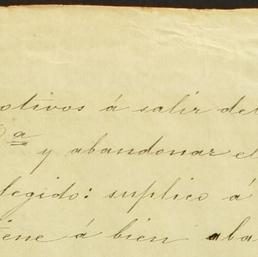 otivos á salir del
D.ª
y abandonar el
legido: suplico á
iene á bien aba